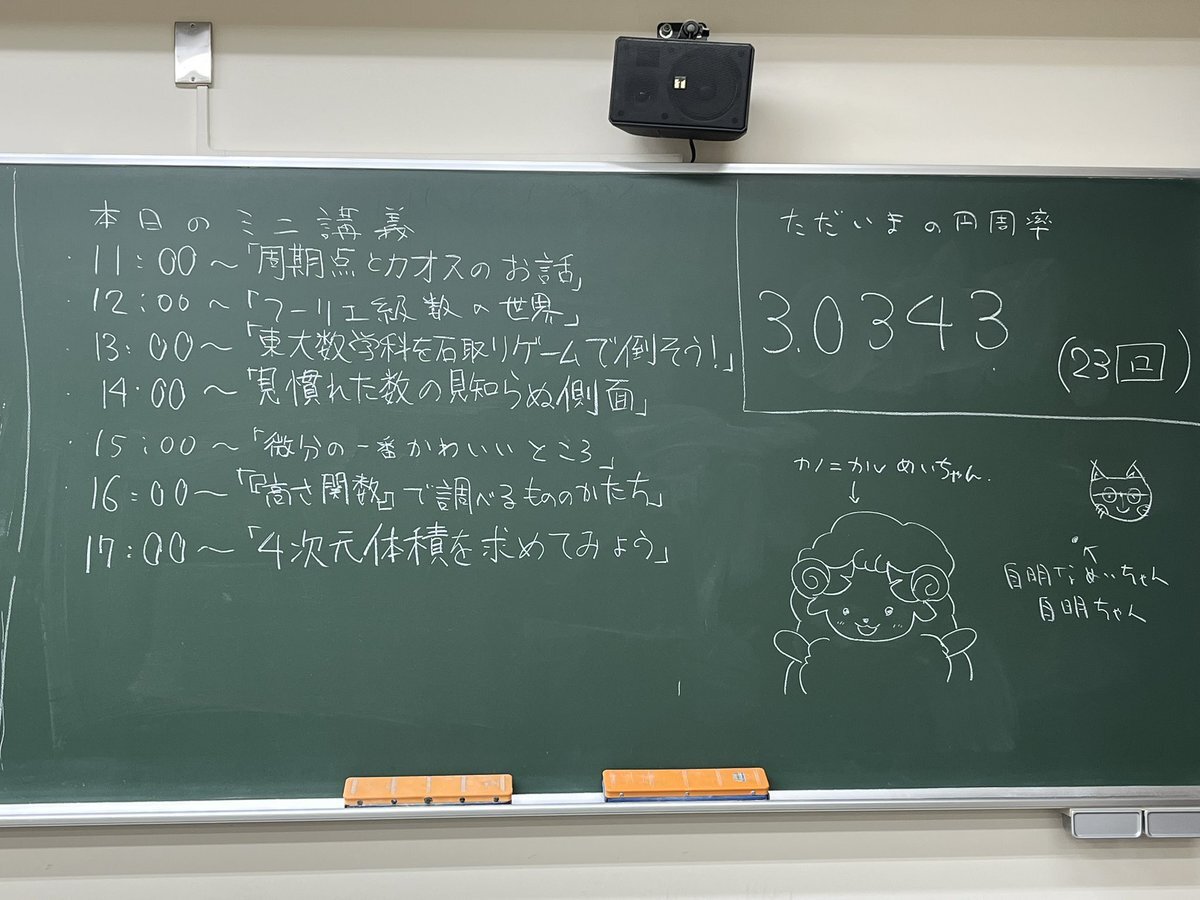 本日のミニ講義
・11:00～「周期点とカオスのお話」
・12:00～「フーリエ級数の世界」
・13:00～「東大数学科を石取りゲームで倒そう!」
・14:00～「見慣れた数の見知らぬ側面」
・15:00～「微分の一番かわいいところ」
・16:00～「『高さ関数』で調べるもののかたち」
17:00～「4次元体積を求めてみよう」
ただいまの円周率
3.0343
(23回)
カノニカルめいちゃん.
↓
↖
自明なめいちゃん
自明ちゃん